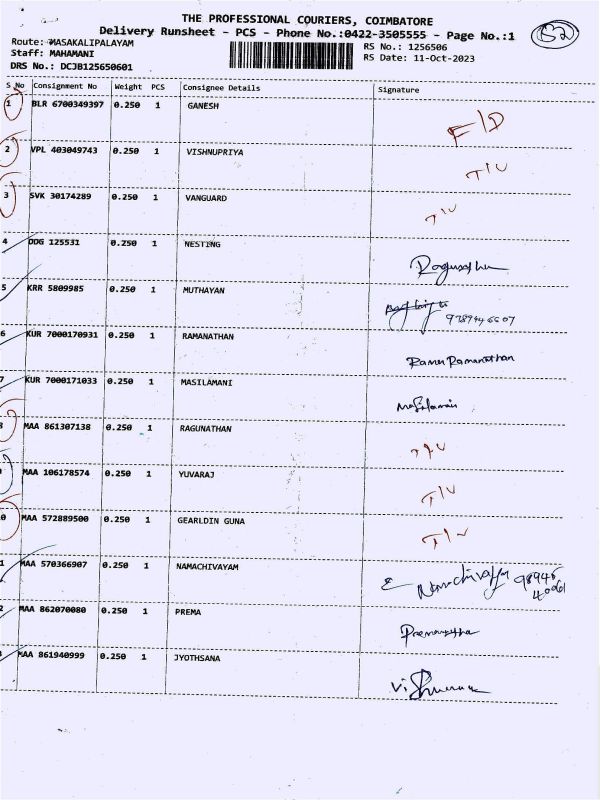 THE PROFESSIONAL COURIERS, COIMBATORE
Delivery Runsheet - PCS - Phone No.:0422-3505555 - Page No.:1
52
Route: MASAKALIPALAYAM
RS No.: 1256506
Staff: MAHAMANI
RS Date: 11-Oct-2023
DRS No.: DCJB125650601
S No Consignment No Weight PCS Consignee Details Signature
1 BLR 6700349397 0.250 1 GANESH
F/D
2 VPL 403049743 0.250 1 VISHNUPRIYA
T/U
3 SVK 30174289 0.250 1 VANGUARD
T/U
4 DDG 125531 0.250 1 NESTING
5 KRR 5809985 0.250 1 MUTHAYAN
6 KUR 7000170931 0.250 1 RAMANATHAN
Ramanathan
7 KUR 7000171033 0.250 1 MASILAMANI
8 MAA 861307138 0.250 1 RAGUNATHAN
T/U
MAA 106178574 0.250 1 YUVARAJ
T/U
0 MAA 572889500 0.250 1 GEARLDIN GUNA
T/U
1 MAA 570366907 0.250 1 NAMACHIVAYAM
2 MAA 862070080 0.250 1 PREMA
MAA 861940999 0.250 1 JYOTHSANA